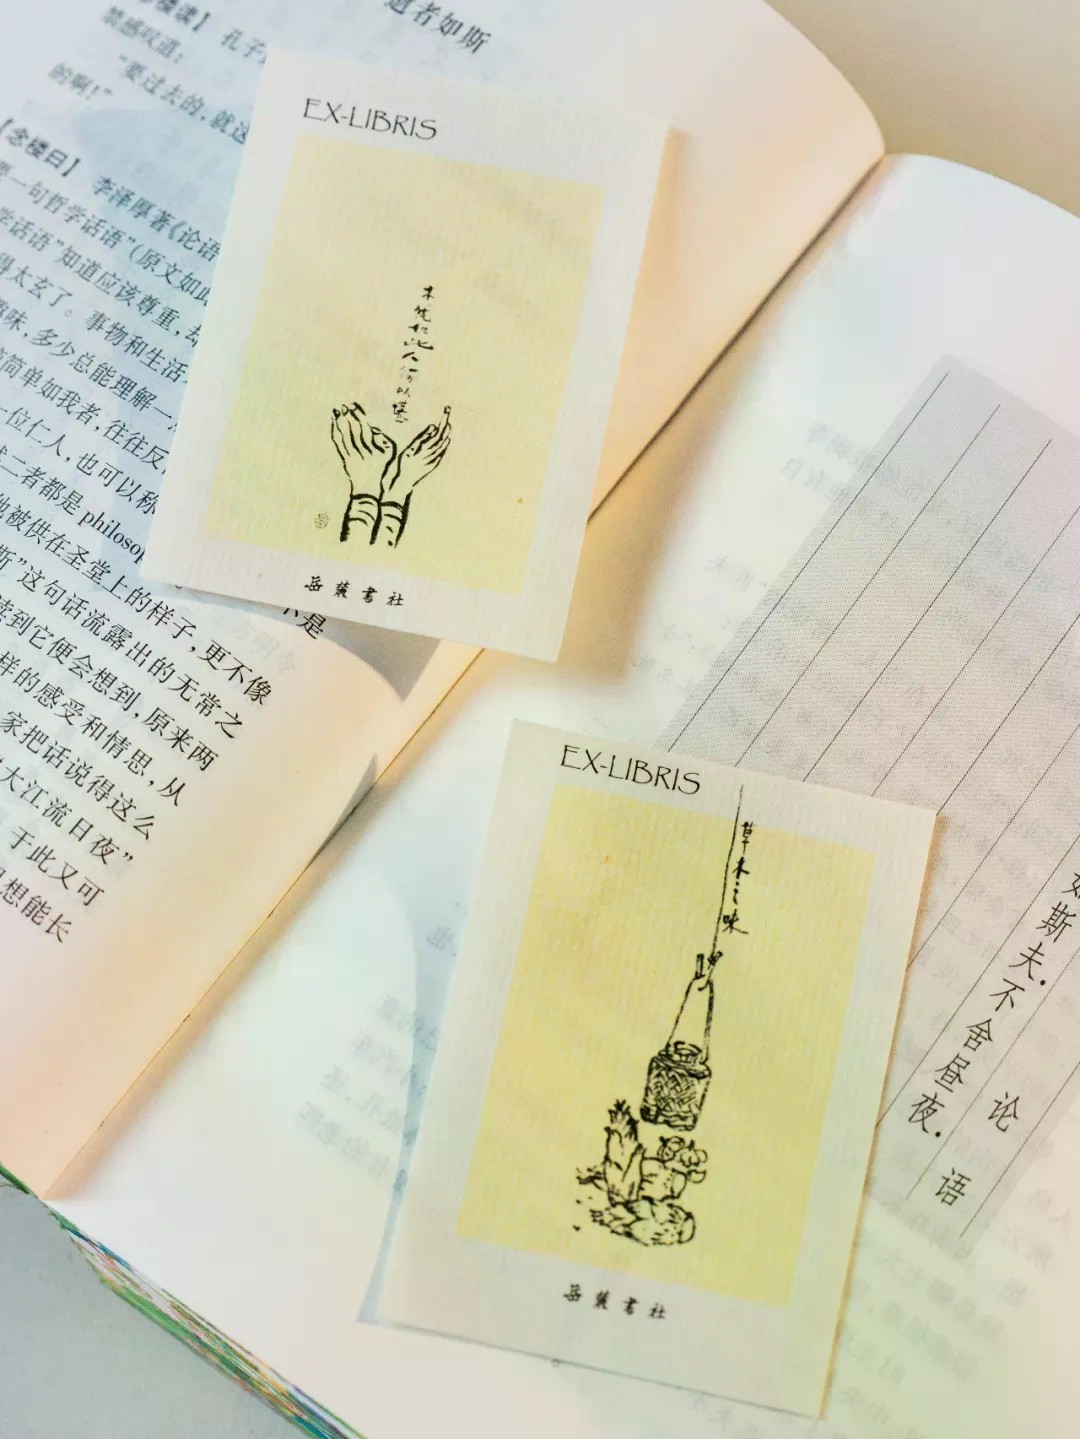 逝者如斯
【念楼读】 孔子
禁感叹道：
“要过去的，就这
的啊！”
【念楼曰】 李泽厚著《论语
要一句哲学话语”（原文如此
学话语”知道应该尊重，却
得太玄了。事物和生活
趣味，多少总能理解一
简单如我者，往往反
一位仁人，也可以称
二者都是 philosop
他被供在圣堂上的样子，更不像
斯”这句话流露出的无常之
读到它便会想到，原来两
样的感受和情思，从
家把话说得这么
“大江流日夜”
于此又可
思想能长
不是
EX-LIBRIS
木犹如此人何以堪
岳麓書社
EX-LIBRIS
草木之味
岳麓書社
如斯夫．不舍昼夜．
论语